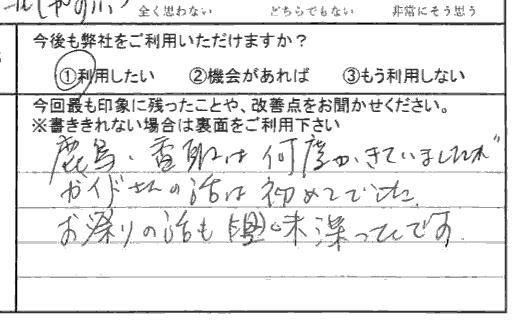 全く思わない どちらでもない 非常にそう思う
今後も弊社をご利用いただけますか？
①利用したい ②機会があれば ③もう利用しない
今回最も印象に残ったことや、改善点をお聞かせください。
※書ききれない場合は裏面をご利用下さい
鹿島・香取は何度かきていましたが
ガイドさんの話は初めてでした。
お祭りの話も興味深ったです。